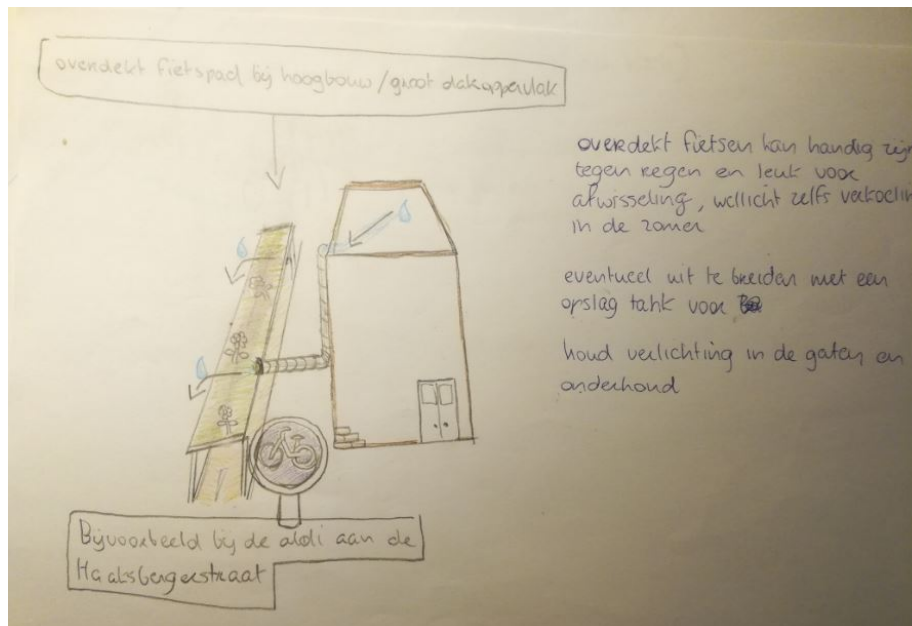 overdekt fietspad bij hoogbouw / groot dakoppervlak
overdekt fietsen kan handig zijn
tegen regen en leuk voor
afwisseling, wellicht zelfs verkoelin
in de zomer
eventueel uit te breiden met een
opslag tank voor
houd verlichting in de gaten en
onderhoud
Bijvoorbeeld bij de aldi aan de
Haaksbergerstraat